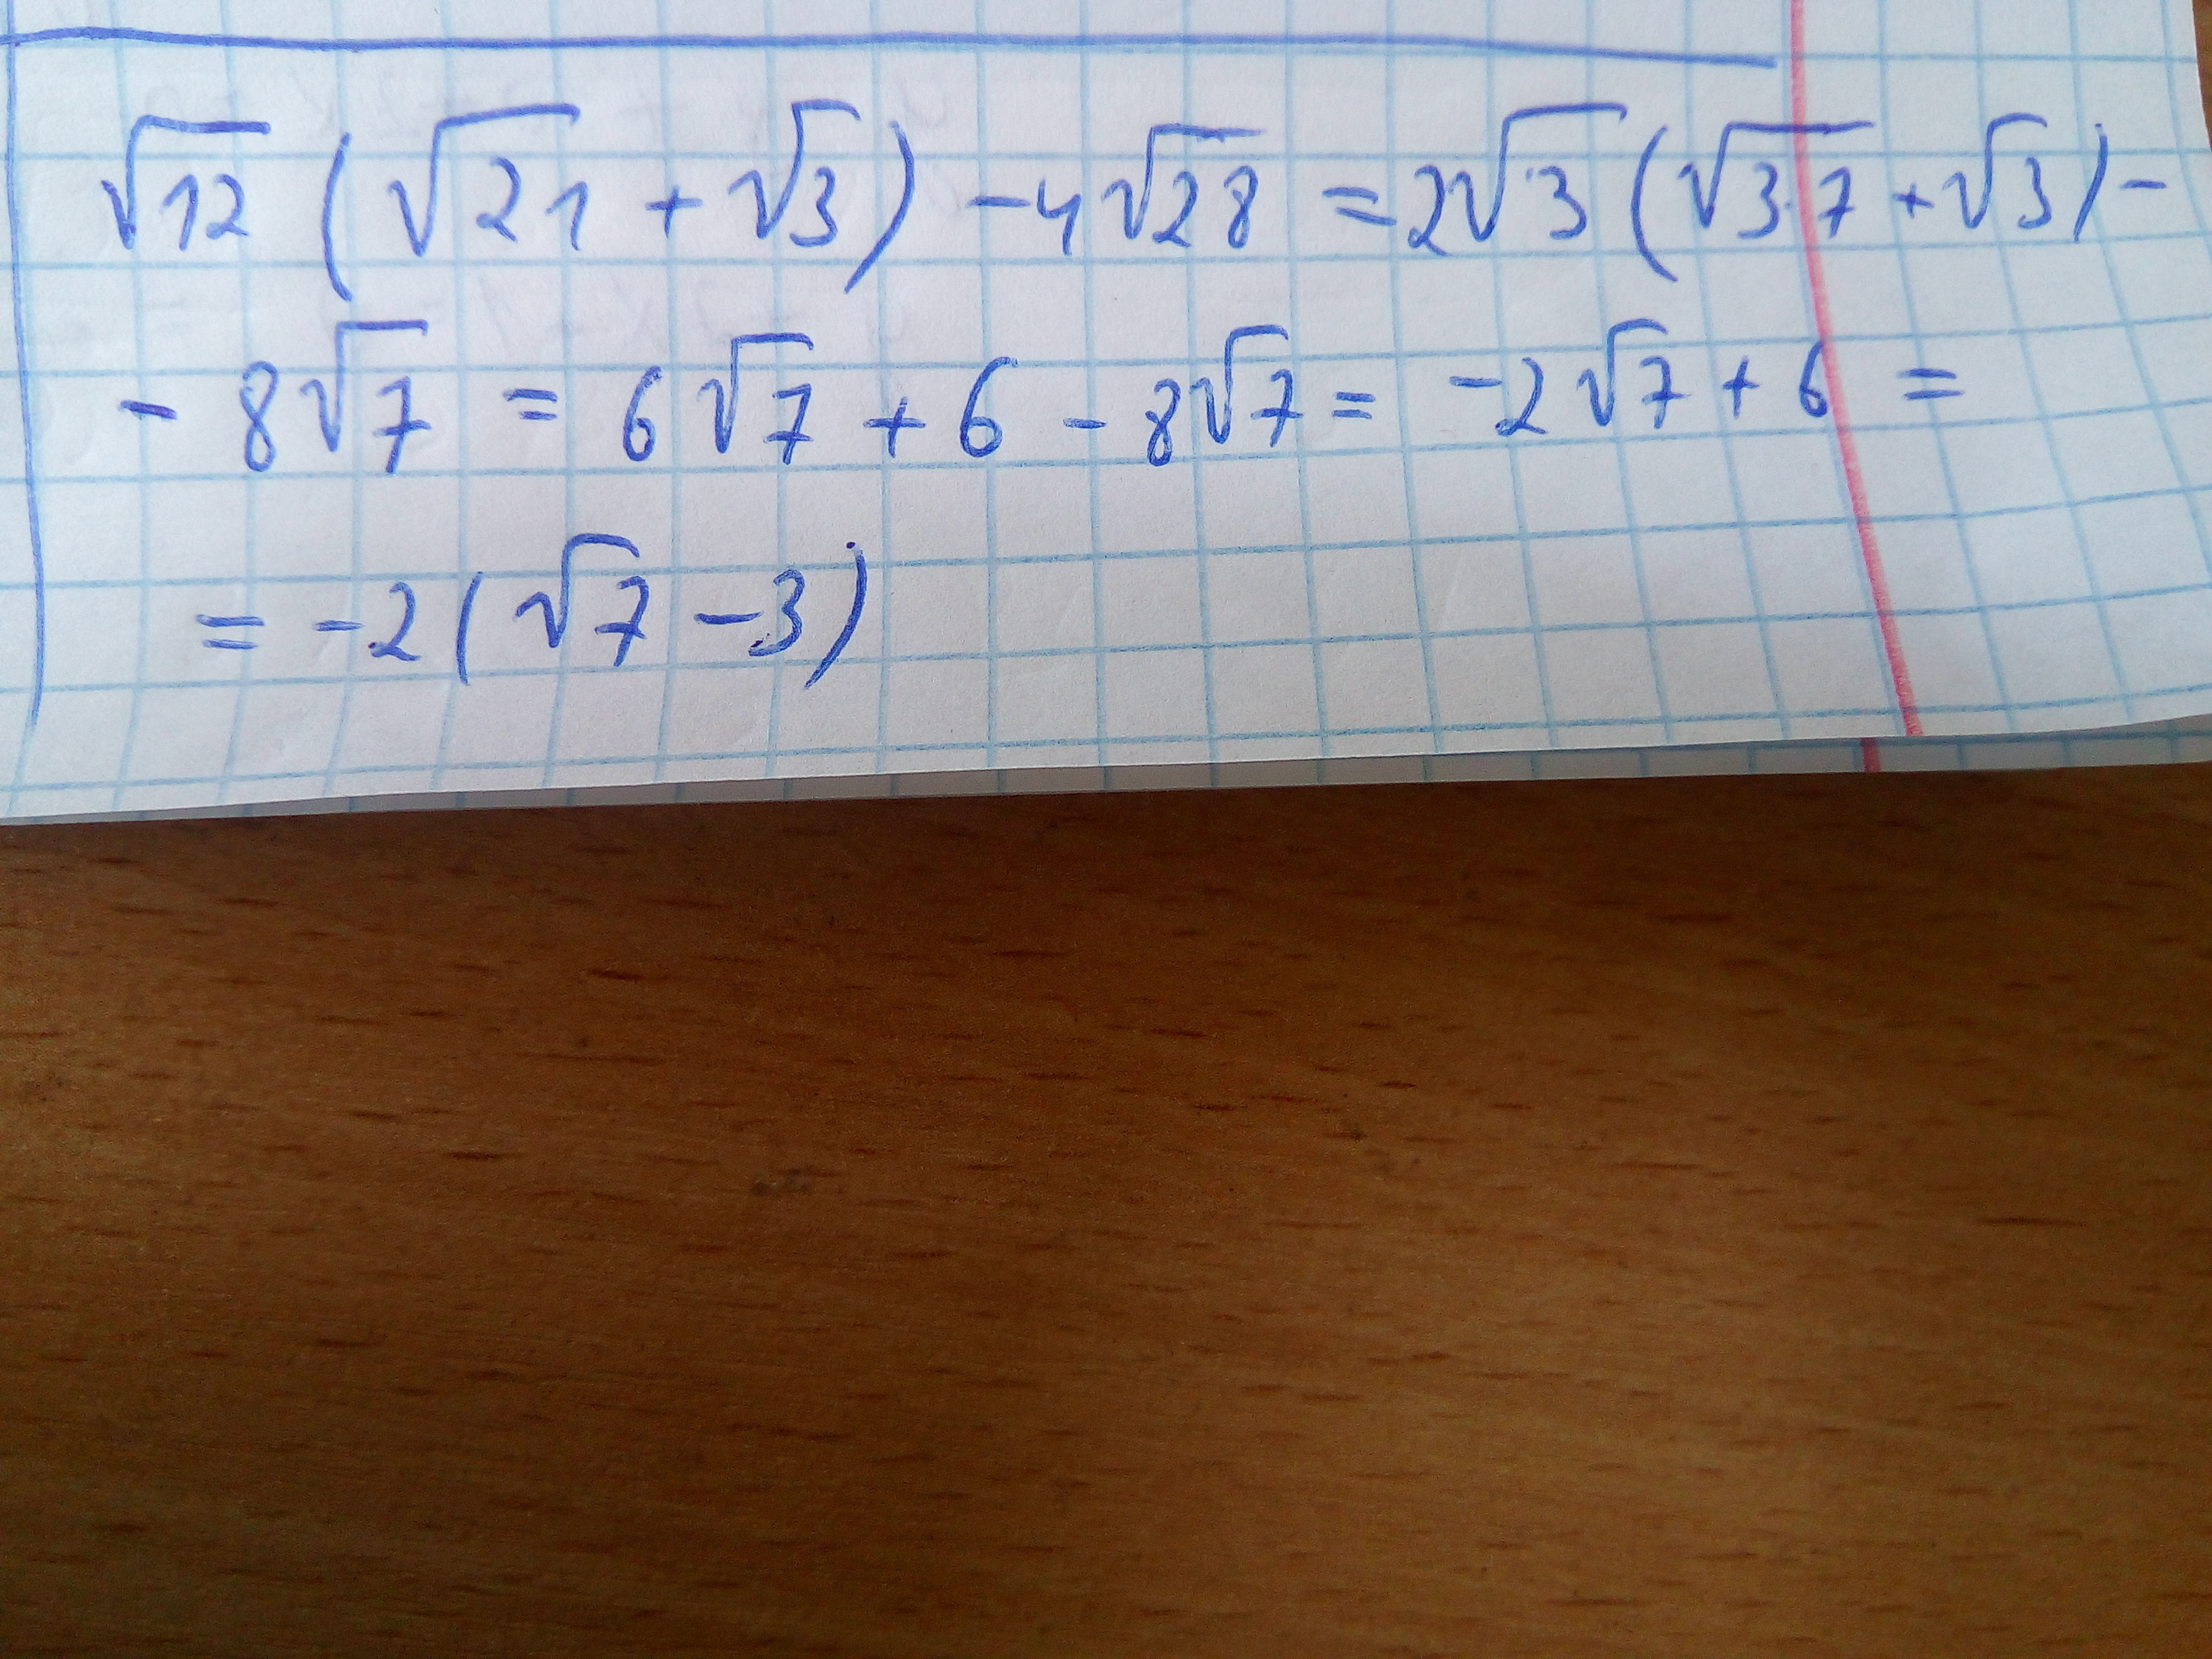 √12 (√21 + √3) - 4√28 = 2√3 (√3·7 + √3) -
- 8√7 = 6√7 + 6 - 8√7 = -2√7 + 6 =
= -2(√7 - 3)